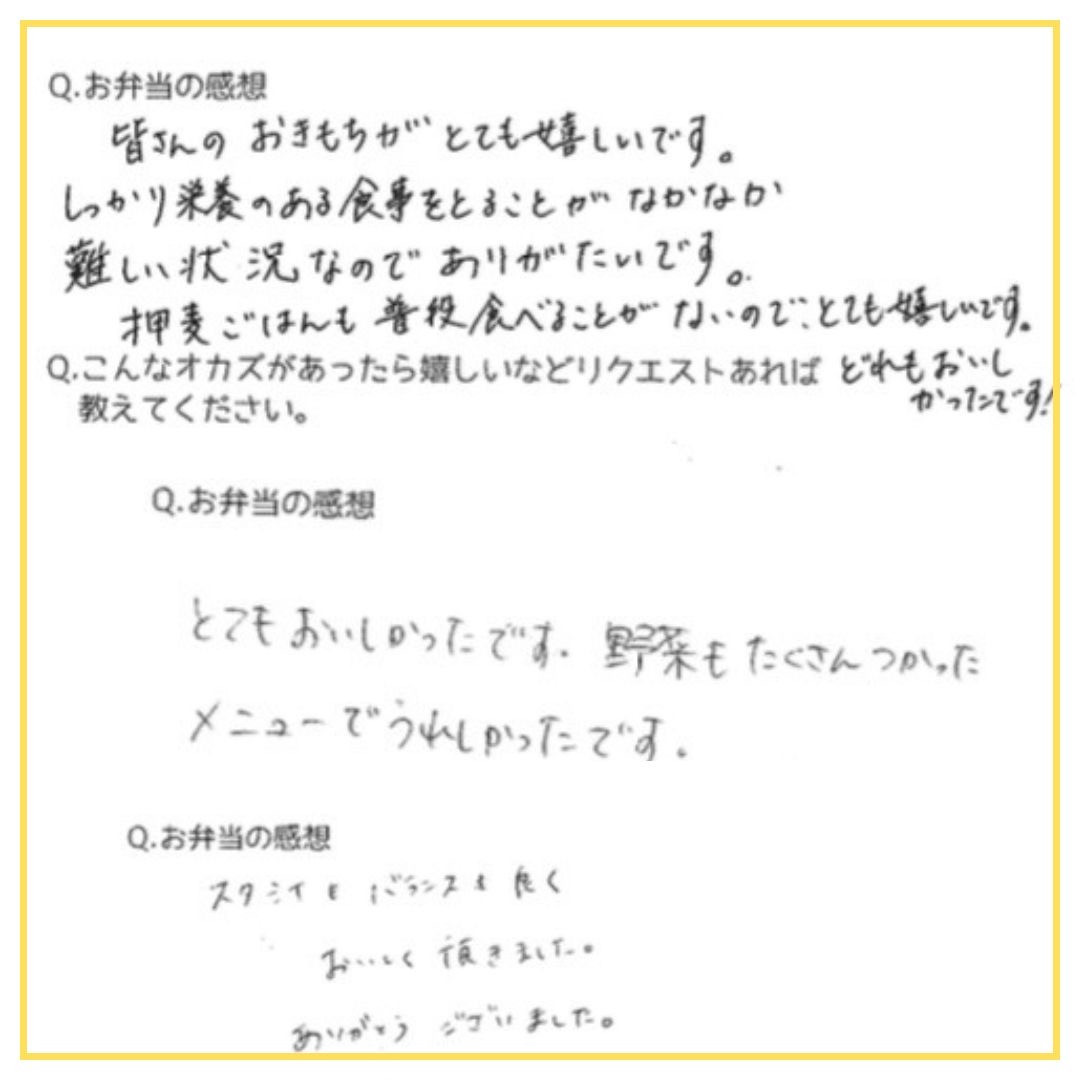 Q.お弁当の感想
皆さんの おきもちが とても嬉しいです。
しっかり栄養のある食事をとることが なかなか
難しい状況なので ありがたいです。
押麦ごはんも 普段食べることが ないので、とても嬉しいです。
Q.こんなオカズがあったら嬉しいなどリクエストあれば どれもおいし
教えてください。 かったです!
Q.お弁当の感想
とてもおいしかったです。野菜も たくさんつかった
メニューでうれしかったです。
Q.お弁当の感想
バランスも 良く
おいしく 頂きました。
ありがとう ございました。